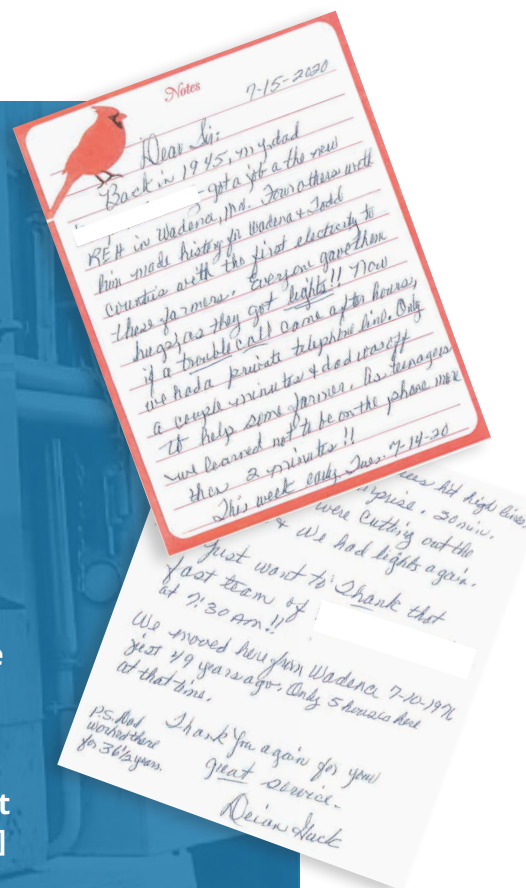 Notes
7-15-2020
Dear Sir:
Back in 1945, my dad
- got a job a the new
REA in Wadena, Mn. Four others with
him made history for Wadena & Todd
counties with the first electricity to
these farmers. Everyone gave them
hugs, as they got lights!! Now
if a trouble call came after hours,
we had a private telephone line. Only
a couple minutes & dad was off
to help some farmer. As teenagers
we learned not to be on the phone more
then 2 minutes!!
This week early Tues. 7-14-20
hit high lines,
30 min.
were cutting out the
& we had lights again.
Just want to Thank that
fast team of
at 7:30 Am!!
We moved here from Wadena 7-10-1971
just 49 years ago. Only 5 houses here
at that time.
Thank You again for your
great service.
P.S. Dad
worked there
for 36½ years.
e
t
]